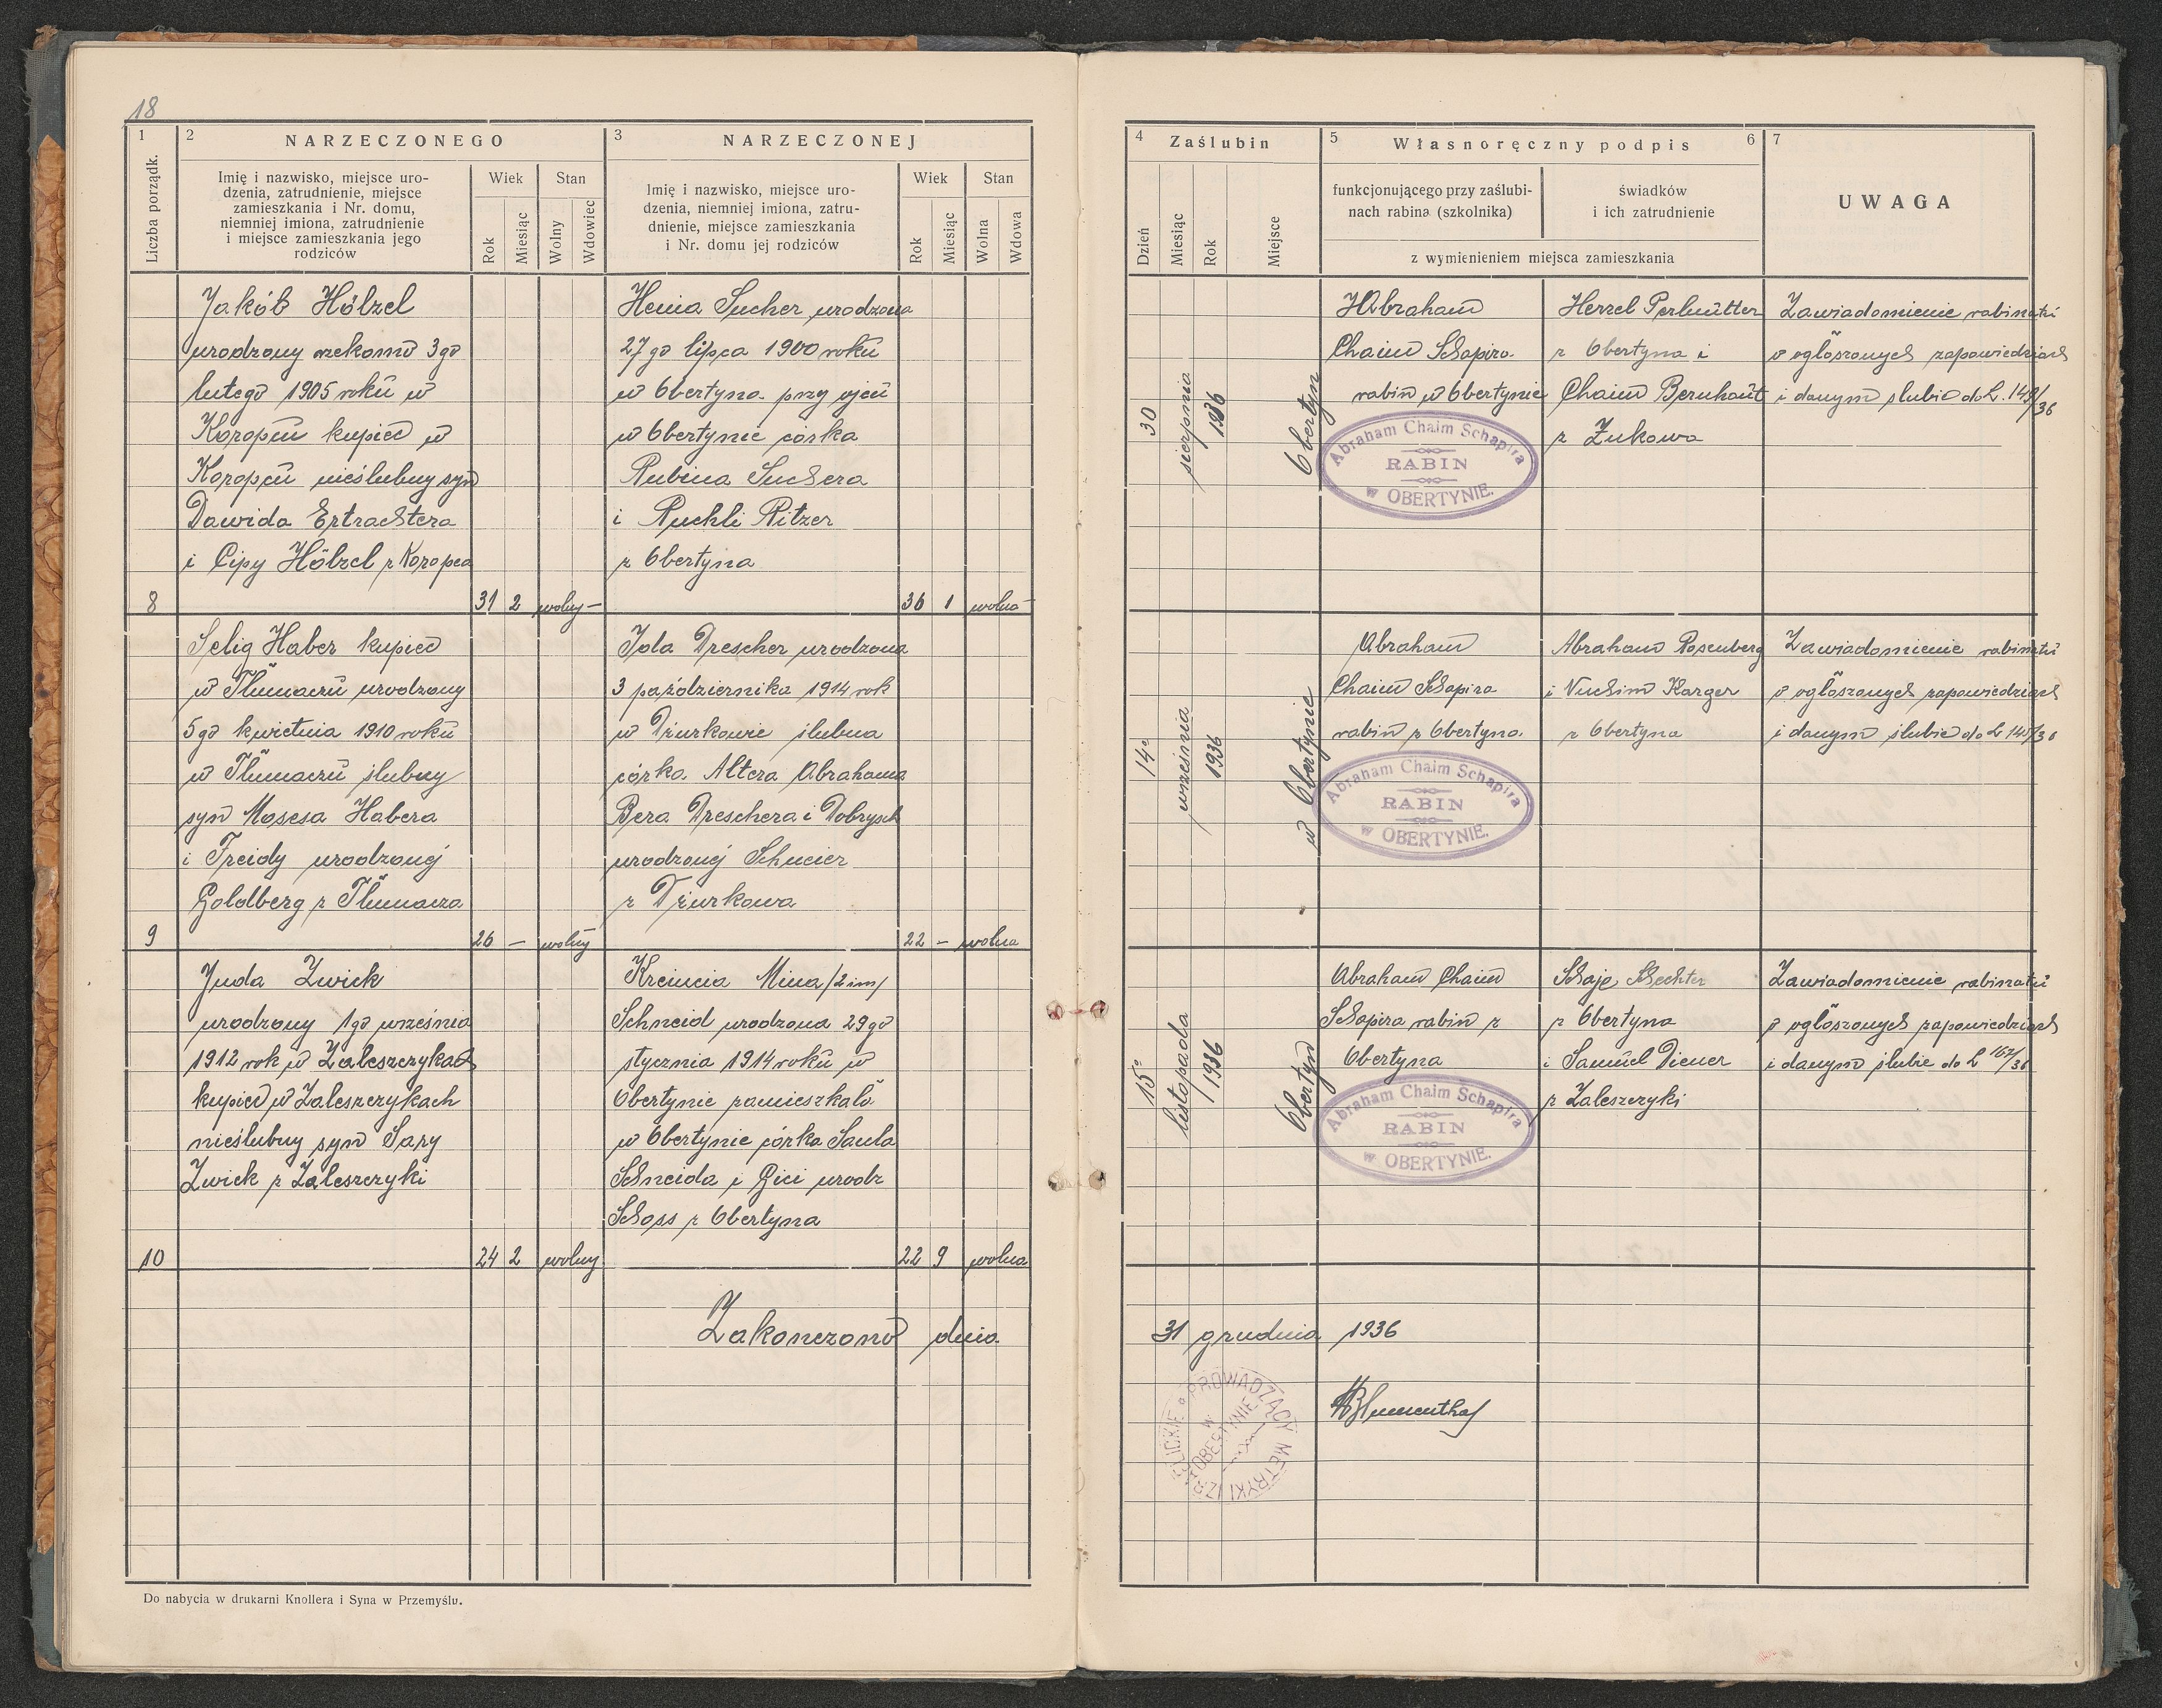 18
1
2
NARZECZONEGO
3
NARZECZONEJ
Liczba porządk.
Imię i nazwisko, miejsce uro-
dzenia, zatrudnienie, miejsce
zamieszkania i Nr. domu,
niemniej imiona, zatrudnienie
i miejsce zamieszkania jego
rodziców
Wiek
Stan
Rok
Miesiąc
Wolny
Wdowiec
Imię i nazwisko, miejsce uro-
dzenia, niemniej imiona, zatru-
dnienie, miejsce zamieszkania
i Nr. domu jej rodziców
Wiek
Stan
Rok
Miesiąc
Wolna
Wdowa
Jakób Hölzel
urodzony rzekomo 3go
lutego 1905 roku w
Koropcu kupiec w
Koropcu nieślubny syn
Dawida Ertrachtera
i Cipy Hölzel z Koropca
8
31 2 wolny -
Henia Sucher urodzona
27go lipca 1900 roku
w Obertyna przy ojcu
w Obertynie córka
Rubina Suchera
i Ruchli Ritzer
z Obertyna
36 1 wolna
Selig Haber kupiec
w Tłumaczu urodzony
5go kwietnia 1910 roku
w Tłumaczu ślubny
syn Mosesa Habera
i Freidy urodzonej
Goldberg z Tłumacza
9
26 - wolny
Jola Drescher urodzona
3 października 1914 rok
w Dżurkowie ślubna
córka Altera Abrahama
Bera Dreschera i Dobrysch
urodzonej Schneier
z Dżurkowa
22 - wolna
Juda Zwick
urodzony 1go września
1912 rok w Zaleszczykach
kupiec w Zaleszczykach
nieślubny syn Sary
Zwick z Zaleszczyki
10
24 2 wolny
Kreincia Mina /2 im/
Schneid urodzona 29go
stycznia 1914 roku w
Obertynie zamieszkała
w Obertynie córka Saula
Schneida i Gici urodz
Schoss z Obertyna
22 9 wolna
Zakończono dnia
Do nabycia w drukarni Knollera i Syna w Przemyślu.
4
Zaślubin
5
Własnoręczny podpis
6
7
Dzień
Miesiąc
Rok
Miejsce
funkcjonującego przy zaślubi-
nach rabina (szkolnika)
świadków
i ich zatrudnienie
z wymienieniem miejsca zamieszkania
UWAGA
30
sierpnia
1936
Obertyn
Abraham
Chaim Schapira
rabin w Obertynie
Abraham Chaim Schapira
RABIN
w OBERTYNIE.
Herzel Perlmütter
z Obertyna i
Chaim Bernhaut
z Żukowa
Zawiadomienie rabinatu
o ogłoszonych zapowiedziach
i danym ślubie do L. 149/36
14
września
1936
w Obertynie
Abraham
Chaim Schapira
rabin z Obertyna
Abraham Chaim Schapira
RABIN
w OBERTYNIE.
Abraham Rosenberg
i Nuchim Karger
z Obertyna
Zawiadomienie rabinatu
o ogłoszonych zapowiedziach
i danym ślubie do L
15
listopada
1936
Obertyn
Abraham Chaim
Schapira rabin z
Obertyna
Abraham Chaim Schapira
RABIN
w OBERTYNIE.
Schaje Schechter
z Obertyna
i Samuel Diener
z Zaleszczyki
Zawiadomienie rabinatu
o ogłoszonych zapowiedziach
i danym ślubie do L
31 grudnia 1936
Blumenthal
PROWADZĄCY METRYKI IZRAELICKIE
w OBERTYNIE